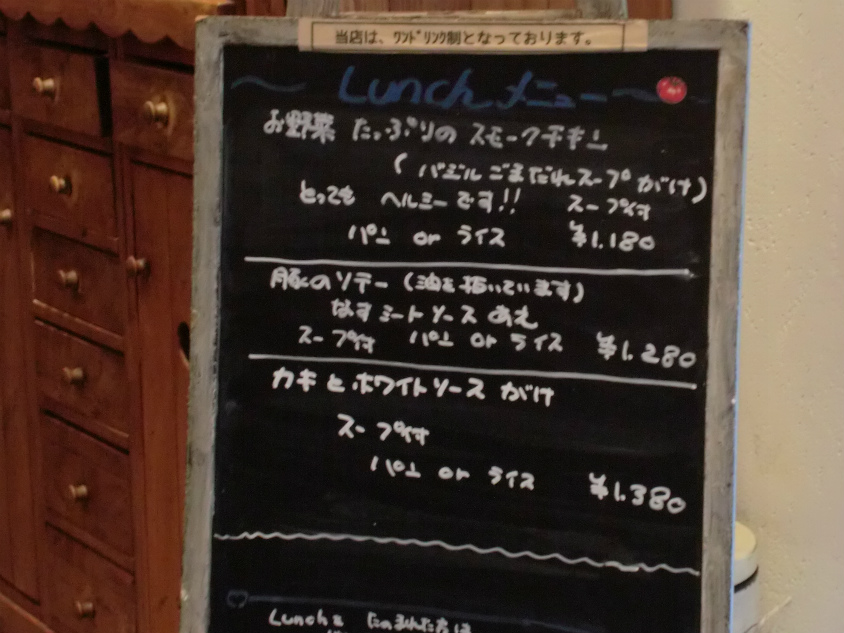 当店は、ワンドリンク制となっております。
Lunch メニュー
お野菜 たっぷりの スモークチキン
(バジルごまだれスープがけ)
とっても ヘルシーです!! スープ付
パン or ライス ¥1.180
豚のソテー (油を抜いています)
なすミートソースあえ
スープ付 パン or ライス ¥1.280
カキとホワイトソース がけ
スープ付
パン or ライス ¥1.380
Lunchを たのまれた方は